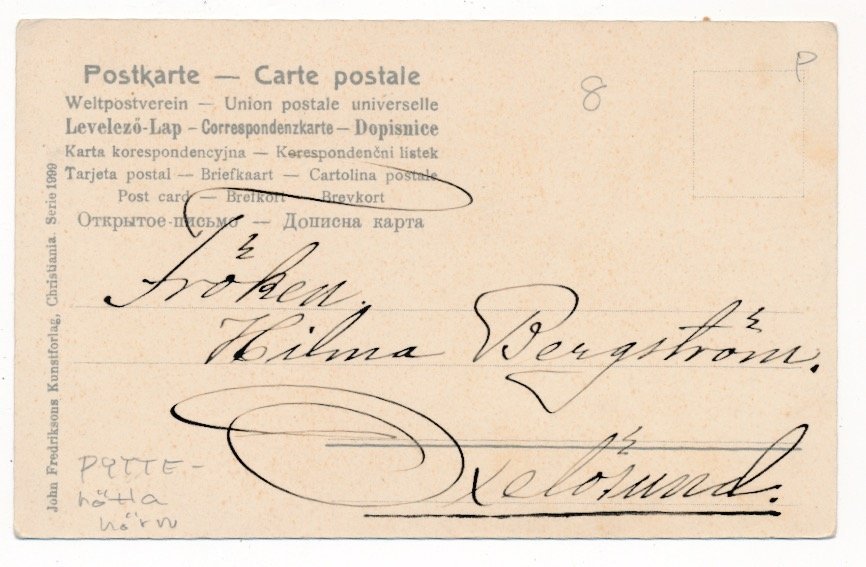 Postkarte — Carte postale
Weltpostverein — Union postale universelle
Levelező-Lap – Correspondenzkarte – Dopisnice
Karta korespondencyjna — Korespondenční lístek
Tarjeta postal — Briefkaart — Cartolina postale
Post card — Brefkort — Brevkort
Открытое письмо — Дописна карта
8
P
Fröken.
Hilma Bergström.
Oxelösund.
John Fredriksons Kunstforlag, Christiania. Serie 1999
PYTTE-